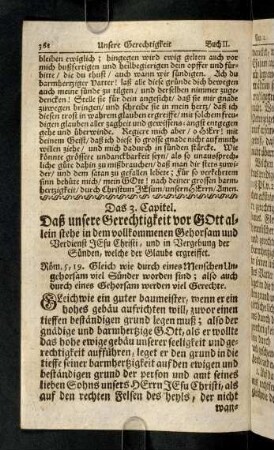 362 Unsere Gerechtigkeit Buch II.
bleiben ewiglich; hingegen wird ewig gelten auch vor
mich bußfertigen und heilbegierigen dein opffer und für-
bitte, die du thust, auch wann wir sündigen. Ach du
barmhertziger Vatter! laß alle diese gründe dich bewegen
auch meine sünde zu tilgen, und derselben nimmer zuge-
dencken! Stelle sie für dein angesicht, daß sie mir gnade
zuwegen bringen, und schreibe sie in mein hertz, daß ich
diesen trost in wahrem glauben ergreiffe, mit solchem freu-
digen glauben aller zagheit und gewissens-angst entgegen
gehe und überwinde. Regiere mich aber, o HErr! mit
deinem Geist, daß ich diese so grosse gnade nicht auf muth-
willen ziehe, und mich dadurch in sünden stärcke. Wie
könte grössere undanckbarkeit seyn, als so unaussprech-
liche güte dahin zu mißbrauchen, daß man dir stets zuwi-
der, und dem satan zu gefallen lebete; Für so verkehrtem
sinn behüte mich, mein GOtt, nach deiner grossen barm-
hertzigkeit, durch Christum JEsum, unsern HErrn, Amen.
Das 3. Capitel.
Daß unsere Gerechtigkeit vor GOtt al-
lein stehe in dem vollkommenen Gehorsam und
Verdienst JEsu Christi, und in Vergebung der
Sünden, welche der Glaube ergreiffet.
Röm. 5, 19. Gleich wie durch eines Menschen Un-
gehorsam viel Sünder worden sind; also auch
durch eines Gehorsam werden viel Gerechte.
GLeich wie ein guter baumeister, wenn er ein
hohes gebäu aufrichten will, zuvor einen
tieffen beständigen grund legen muß; also der
gnädige und barmhertzige GOtt, als er wollte
das hohe ewige gebäu unserer seeligkeit und ge-
rechtigkeit aufführen, leget er den grund in die
tieffe seiner barmhertzigkeit auf den ewigen und
beständigen grund der person und amt seines
lieben Sohns unsers HErrn JEsu Christi, als
auf den rechten Felsen des heyls, der nicht
wan-